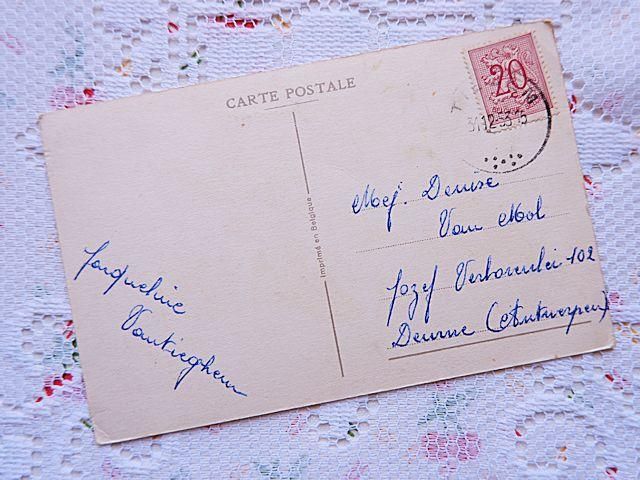 CARTE POSTALE
20
31.12-53.15
Imprimé en Belgique
Mej. Denise
Van Mol
Jozef Verbovenlei 102
Deurne (Antwerpen)
Jacqueline
Vantieghem